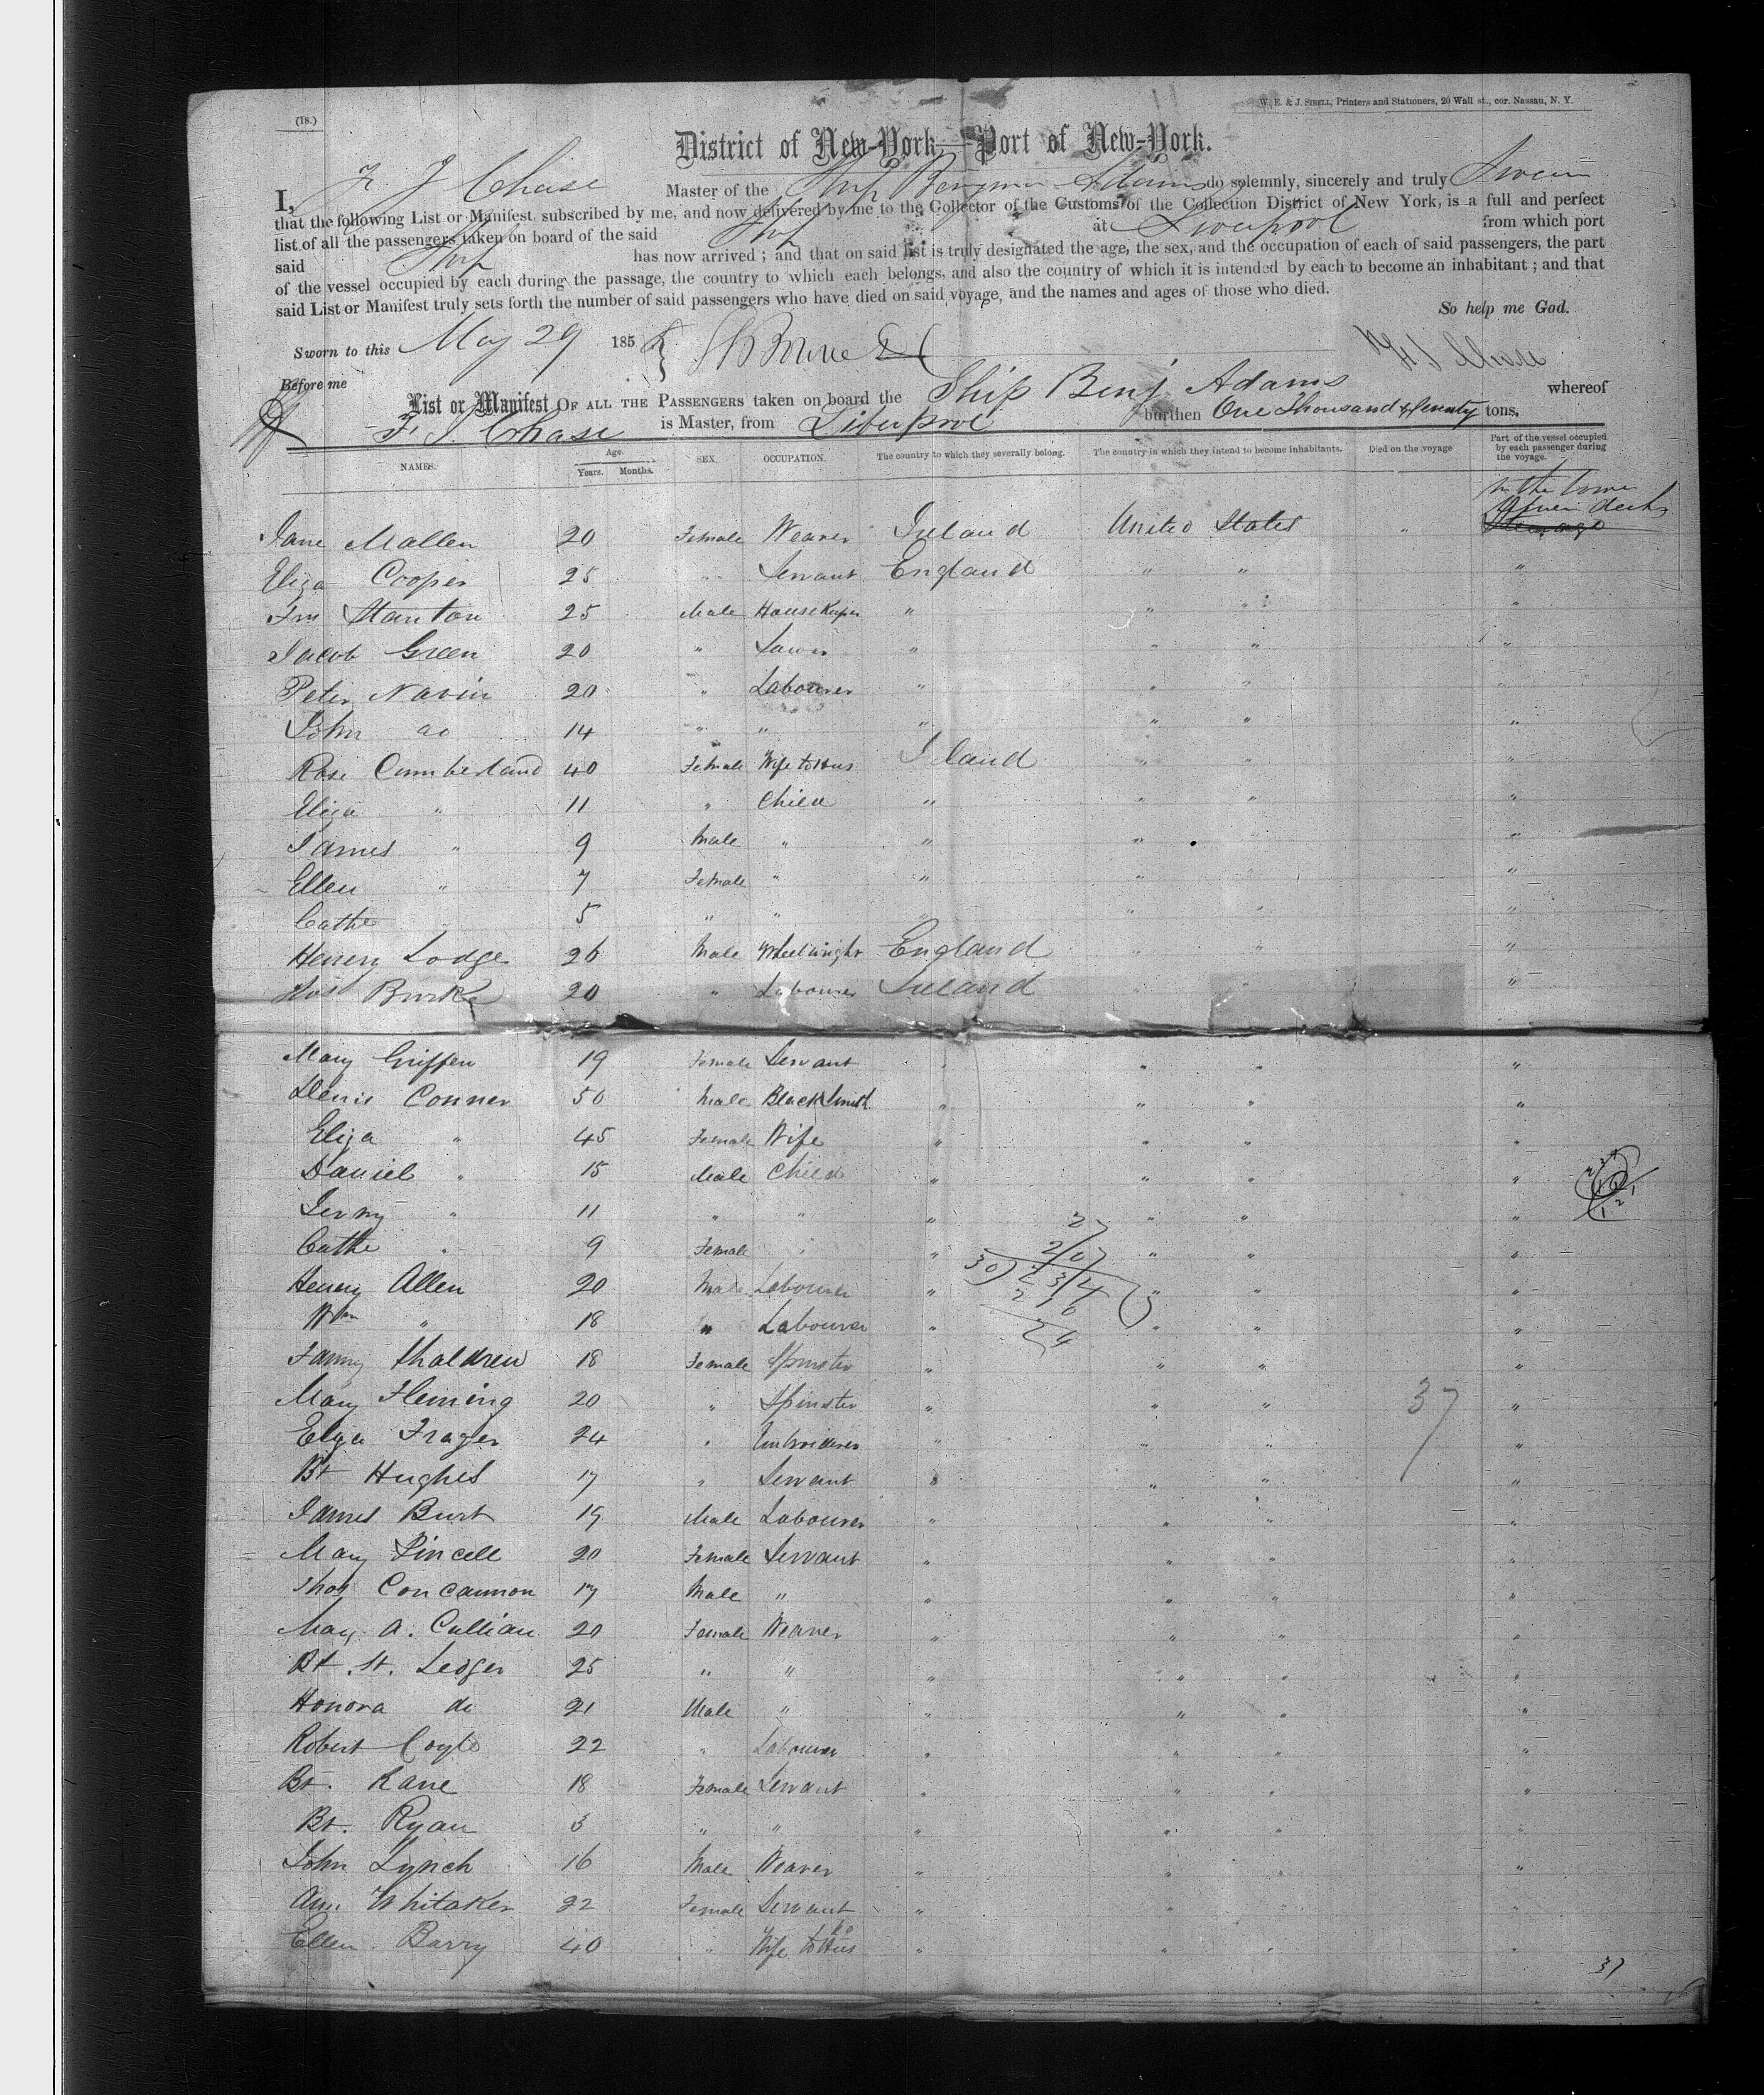 (18.)
W. E. & J. SIBELL, Printers and Stationers, 20 Wall st., cor. Nassau, N. Y.
District of New-York—Port of New-York.
I, F. J. Chase Master of the Ship Benjamin Adams do solemnly, sincerely and truly Swear
that the following List or Manifest, subscribed by me, and now delivered by me to the Collector of the Customs of the Collection District of New York, is a full and perfect
list of all the passengers taken on board of the said Ship at Liverpool from which port
said Ship has now arrived; and that on said list is truly designated the age, the sex, and the occupation of each of said passengers, the part
of the vessel occupied by each during the passage, the country to which each belongs, and also the country of which it is intended by each to become an inhabitant; and that
said List or Manifest truly sets forth the number of said passengers who have died on said voyage, and the names and ages of those who died.
So help me God.
Sworn to this May 29 185
Before me
List or Manifest OF ALL THE PASSENGERS taken on board the Ship Benj Adams whereof
F. J. Chase is Master, from Liverpool burthen One Thousand & Seventy tons.
NAMES. Age. Years. Months. SEX. OCCUPATION. The country to which they severally belong. The country in which they intend to become inhabitants. Died on the voyage Part of the vessel occupied by each passenger during the voyage.
In the lower
between decks
Jane Mallen 20 Female Weaver Ireland United States " Steerage
Eliza Cooper 25 " Servant England " " "
Stanton 25 Male House Keeper " " " "
Jacob Green 20 " " " " "
Peter Navin 20 " Labourer " " " "
John do 14 " " " " " "
Rose Cumberland 40 Female Wife to Hus Ireland " " "
Eliza " 11 " Child " " " "
James " 9 Male " " " " "
Ellen " 7 Female " " " " "
Cathe 5 " " " " " "
Henry Lodge 26 Male Wheelwright England " " "
Thos Burke 20 " Labourer Ireland " " "
Mary Griffen 19 Female Servant " " " "
Denis Conner 50 Male BlackSmith " " " "
Eliza " 45 Female Wife " " " "
Daniel " 15 Male Child " " " "
Jerry " 11 " " " " " "
Cathe " 9 Female " " " " "
Henry Allen 20 Male Labourer " " " "
Wm " 18 " Labourer " " " "
Fanny Shaldrew 18 Female Spinster " " " "
Mary Fleming 20 " Spinster " " " "
37
Eliza Frazer 24 " Embroiderer " " " "
Bt Hughes 17 " Servant " " " "
James Burt 19 Male Labourer " " " "
Mary Pincell 20 Female Servant " " " "
Thos Concannon 17 Male " " " " "
Mary A. Cullian 20 Female Weaver " " " "
Bt. St. Ledger 25 " " " " " "
Honora do 21 Male " " " " "
Robert Coyle 22 " Labourer " " " "
Bt. Kane 18 Female Servant " " " "
Bt. Ryan 3 " " " " " "
John Lynch 16 Male Weaver " " " "
Ann Whitaker 22 Female Servant " " " "
Ellen Barry 40 " Wife to Hus " " " "
37